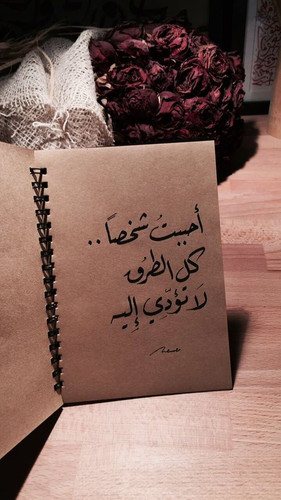 أحببتُ شخصاً..
كل الطرق
لَا تؤدّي إِليه